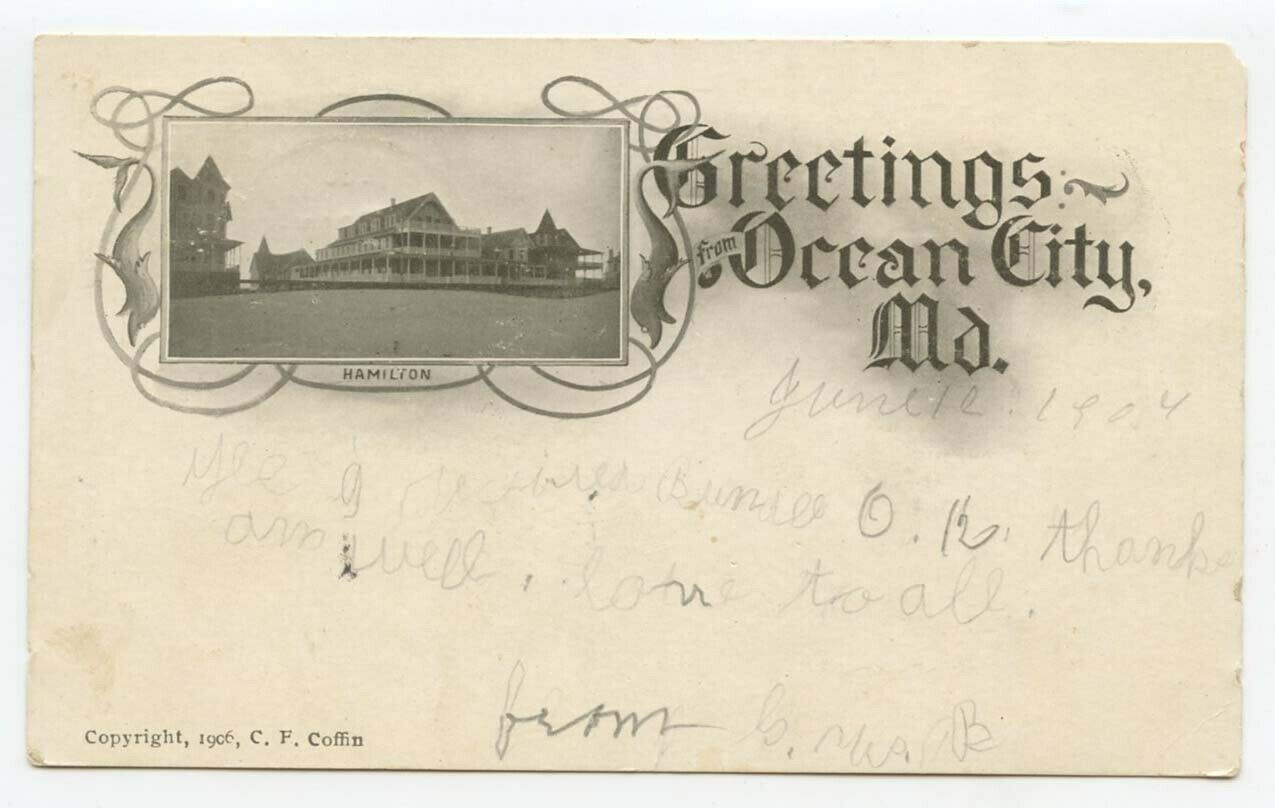 Greetings
from Ocean City,
Md.
HAMILTON
June 12. 1907
Yes I received Bundle O.K. thanks
am well, love to all.
from G. W. B
Copyright, 1906, C. F. Coffin